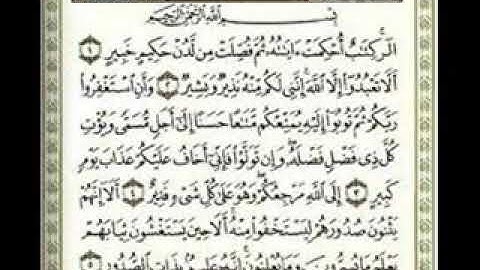 بِسْمِ اللَّهِ الرَّحْمَٰنِ الرَّحِيمِ
الٓر ۚ كِتَٰبٌ أُحْكِمَتْ ءَايَٰتُهُۥ ثُمَّ فُصِّلَتْ مِن لَّدُنْ حَكِيمٍ خَبِيرٍ ١
أَلَّا تَعْبُدُوٓا۟ إِلَّا ٱللَّهَ ۚ إِنَّنِى لَكُم مِّنْهُ نَذِيرٌ وَبَشِيرٌ ٢ وَأَنِ ٱسْتَغْفِرُوا۟
رَبَّكُمْ ثُمَّ تُوبُوٓا۟ إِلَيْهِ يُمَتِّعْكُم مَّتَٰعًا حَسَنًا إِلَىٰٓ أَجَلٍ مُّسَمًّى وَيُؤْتِ
كُلَّ ذِى فَضْلٍ فَضْلَهُۥ ۖ وَإِن تَوَلَّوْا۟ فَإِنِّىٓ أَخَافُ عَلَيْكُمْ عَذَابَ يَوْمٍ
كَبِيرٍ ٣ إِلَى ٱللَّهِ مَرْجِعُكُمْ ۖ وَهُوَ عَلَىٰ كُلِّ شَىْءٍ قَدِيرٌ ٤ أَلَآ إِنَّهُمْ
يَثْنُونَ صُدُورَهُمْ لِيَسْتَخْفُوا۟ مِنْهُ ۚ أَلَا حِينَ يَسْتَغْشُونَ ثِيَابَهُمْ
يَعْلَمُ مَا يُسِرُّونَ وَمَا يُعْلِنُونَ ۚ إِنَّهُۥ عَلِيمٌۢ بِذَاتِ ٱلصُّدُورِ ٥